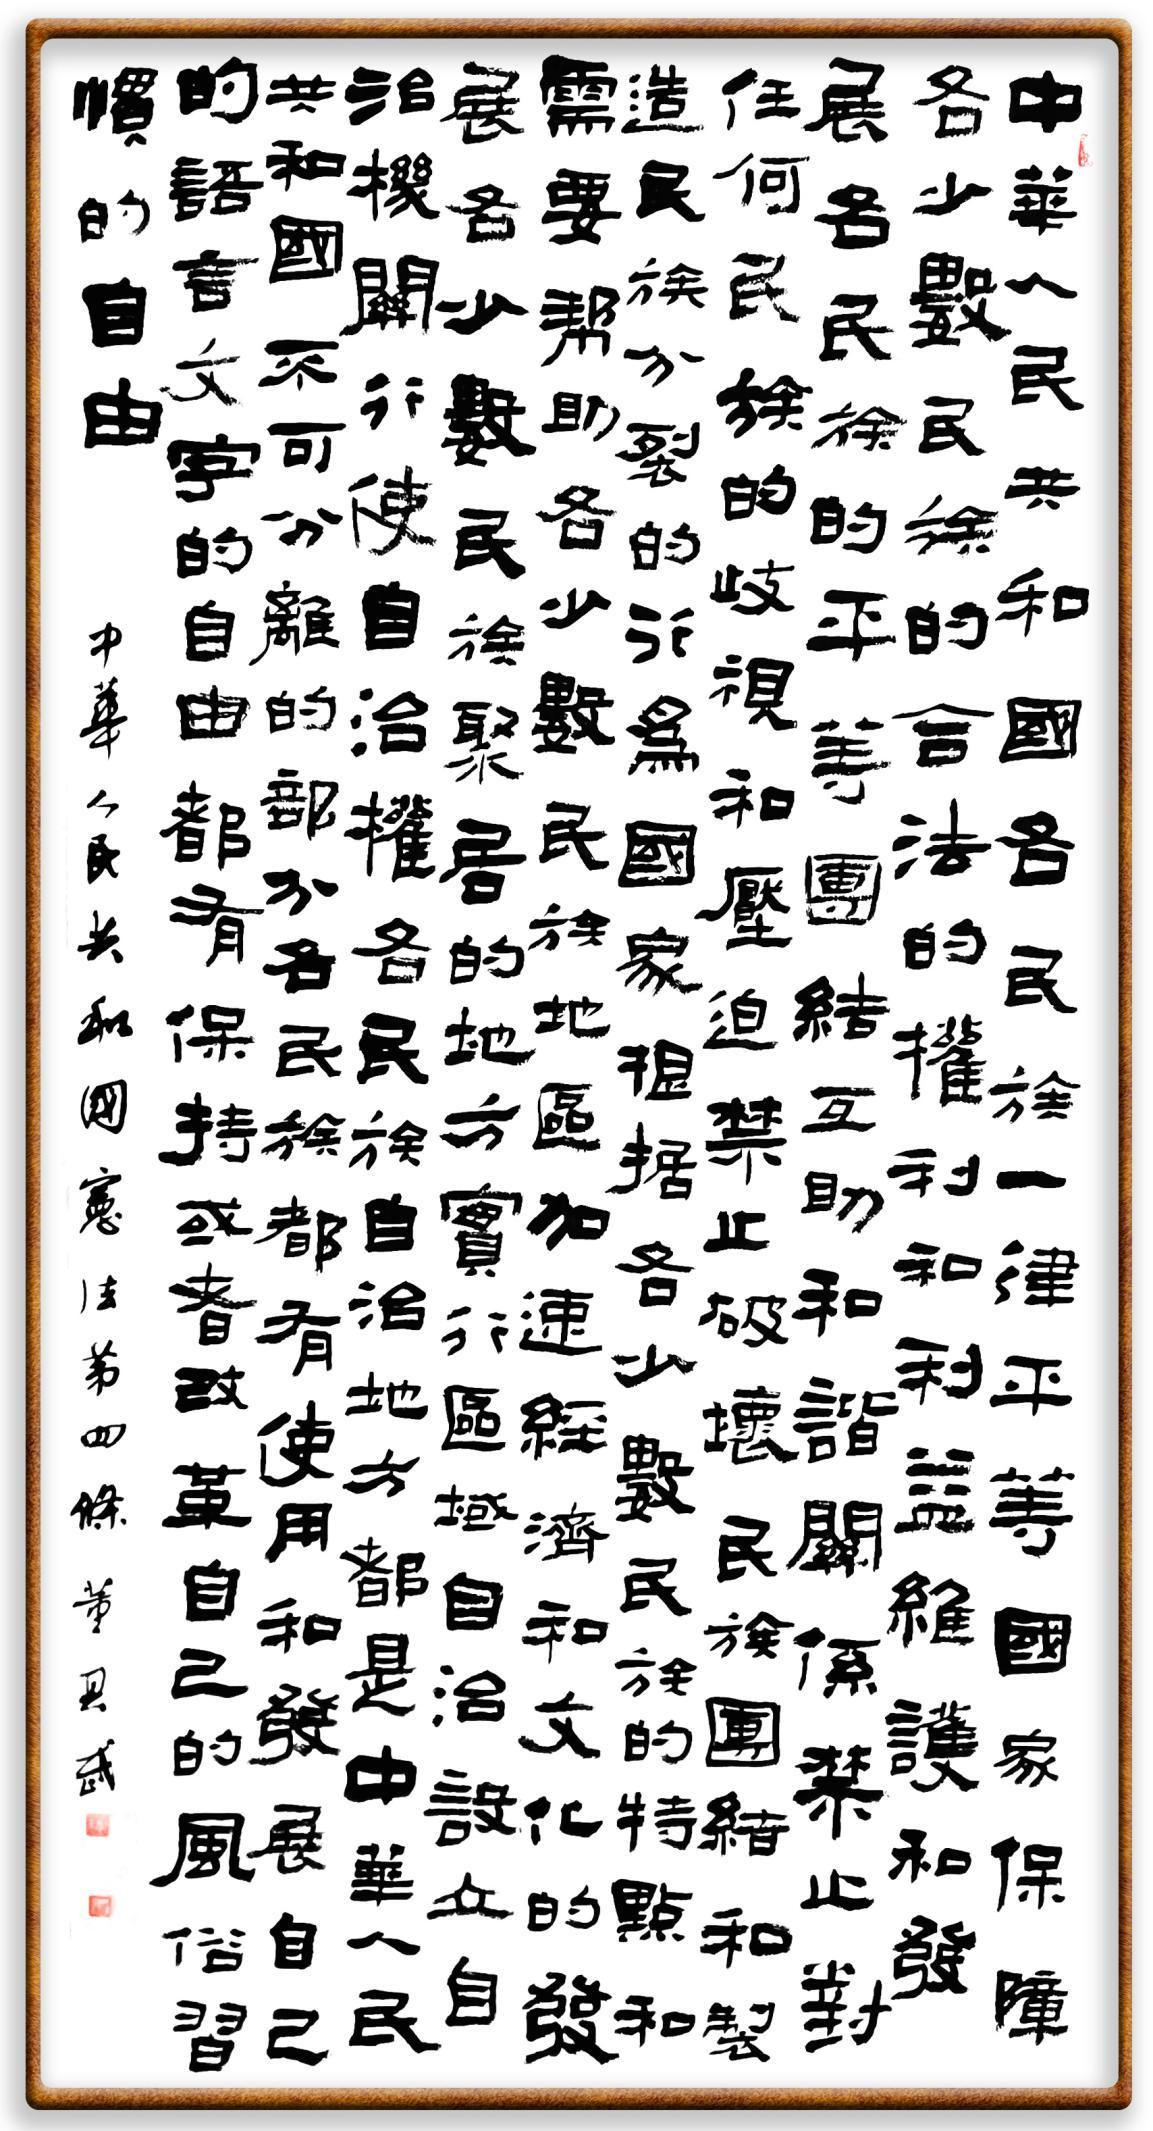 中華人民共和國各民族一律平等國家保障
各少數民族的合法的權利和利益維護和發
展各民族的平等團結互助和諧關係禁止對
任何民族的歧視和壓迫禁止破壞民族團結和製
造民族分裂的行爲國家根据各少數民族的特點和
需要幫助各少數民族地區加速經濟和文化的發
展各少數民族聚居的地方實行區域自治設立自
治機關行使自治權各民族自治地方都是中華人民
共和國不可分離的部分各民族都有使用和發展自己
的語言文字的自由都有保持或者改革自己的風俗習
慣的自由
中華人民共和國憲法第四條 董